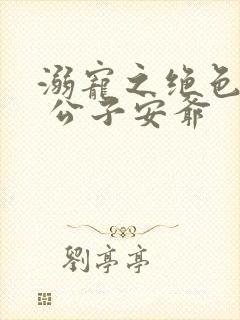 溺寵之绝色
公子安爺
劉亭亭